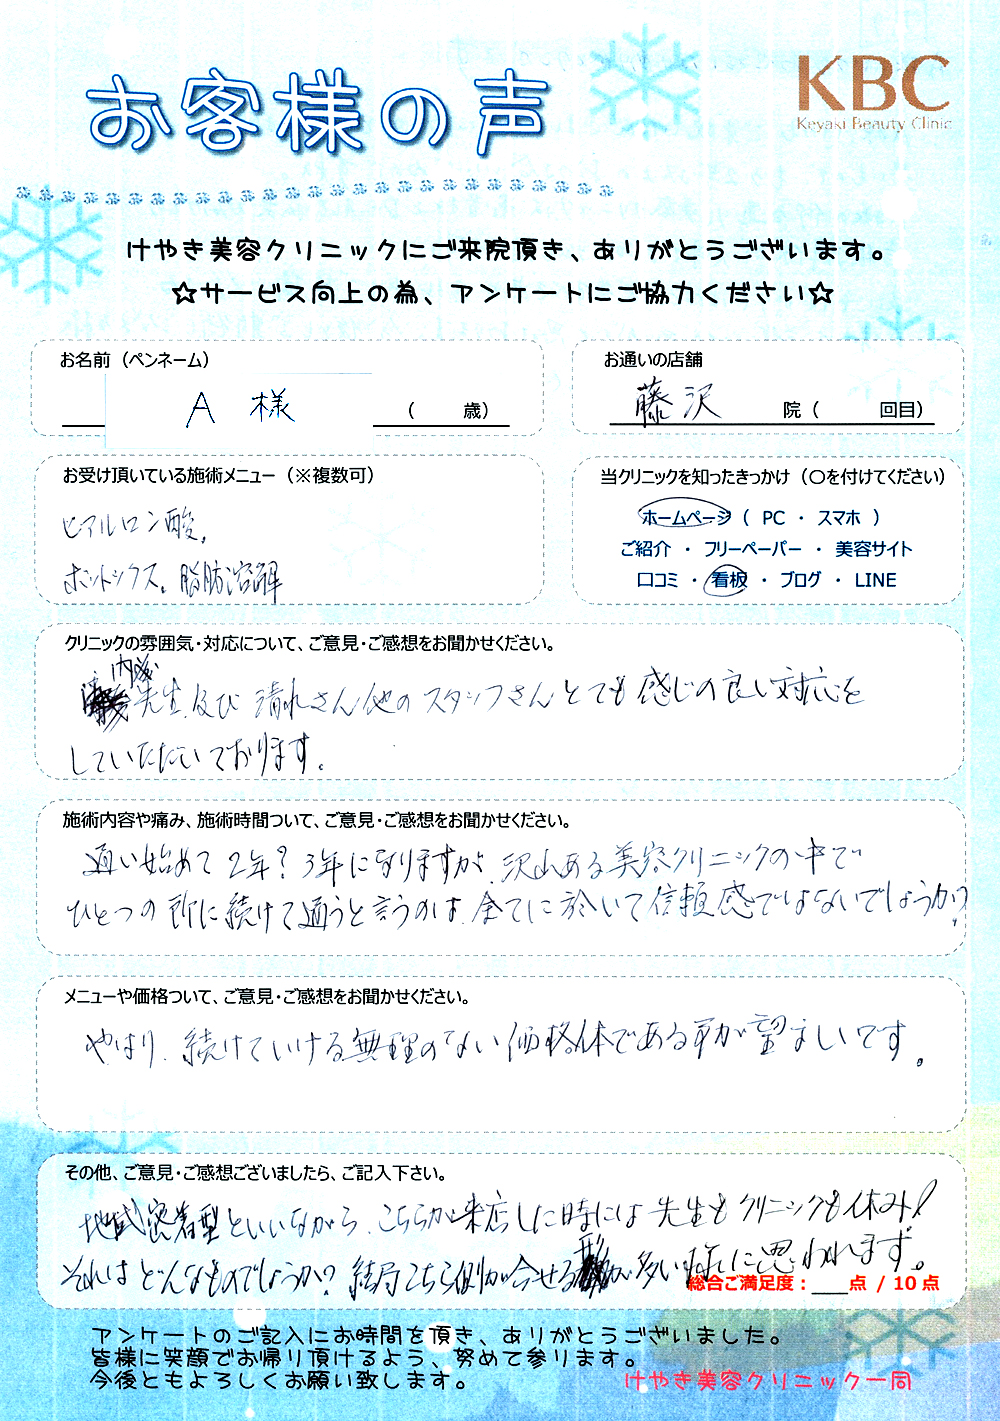 お客様の声
KBC
Keyaki Beauty Clinic
けやき美容クリニックにご来院頂き、ありがとうございます。
☆サービス向上の為、アンケートにご協力ください☆
お名前（ペンネーム）
A 様 （ 歳）
お通いの店舗
藤沢 院（ 回目）
お受け頂いている施術メニュー（※複数可）
ヒアルロン酸,
ボットックス。脂肪溶解
当クリニックを知ったきっかけ（〇を付けてください）
ホームページ（ PC ・ スマホ ）
ご紹介 ・ フリーペーパー ・ 美容サイト
口コミ ・ 看板 ・ ブログ ・ LINE
クリニックの雰囲気・対応について、ご意見・ご感想をお聞かせください。
先生及び清水さん他のスタッフさんとても感じの良い対応を
していただいております。
施術内容や痛み、施術時間ついて、ご意見・ご感想をお聞かせください。
通い始めて2年？3年になりますが、沢山ある美容クリニックの中で
ひとつの所に続けて通うと言うのは、全てに於いて信頼感ではないでしょうか？
メニューや価格ついて、ご意見・ご感想をお聞かせください。
やはり、続けていける無理のない価格体である事が望ましいです。
その他、ご意見・ご感想ございましたら、ご記入下さい。
地域密着型といいながら、こちらが来店した時には先生もクリニックも休み！
それはどんなものでしょうか？結局こちら側が合せる形が多い様に思われます。
総合ご満足度：＿＿点 / 10 点
アンケートのご記入にお時間を頂き、ありがとうございました。
皆様に笑顔でお帰り頂けるよう、努めて参ります。
今後ともよろしくお願い致します。
けやき美容クリニック一同